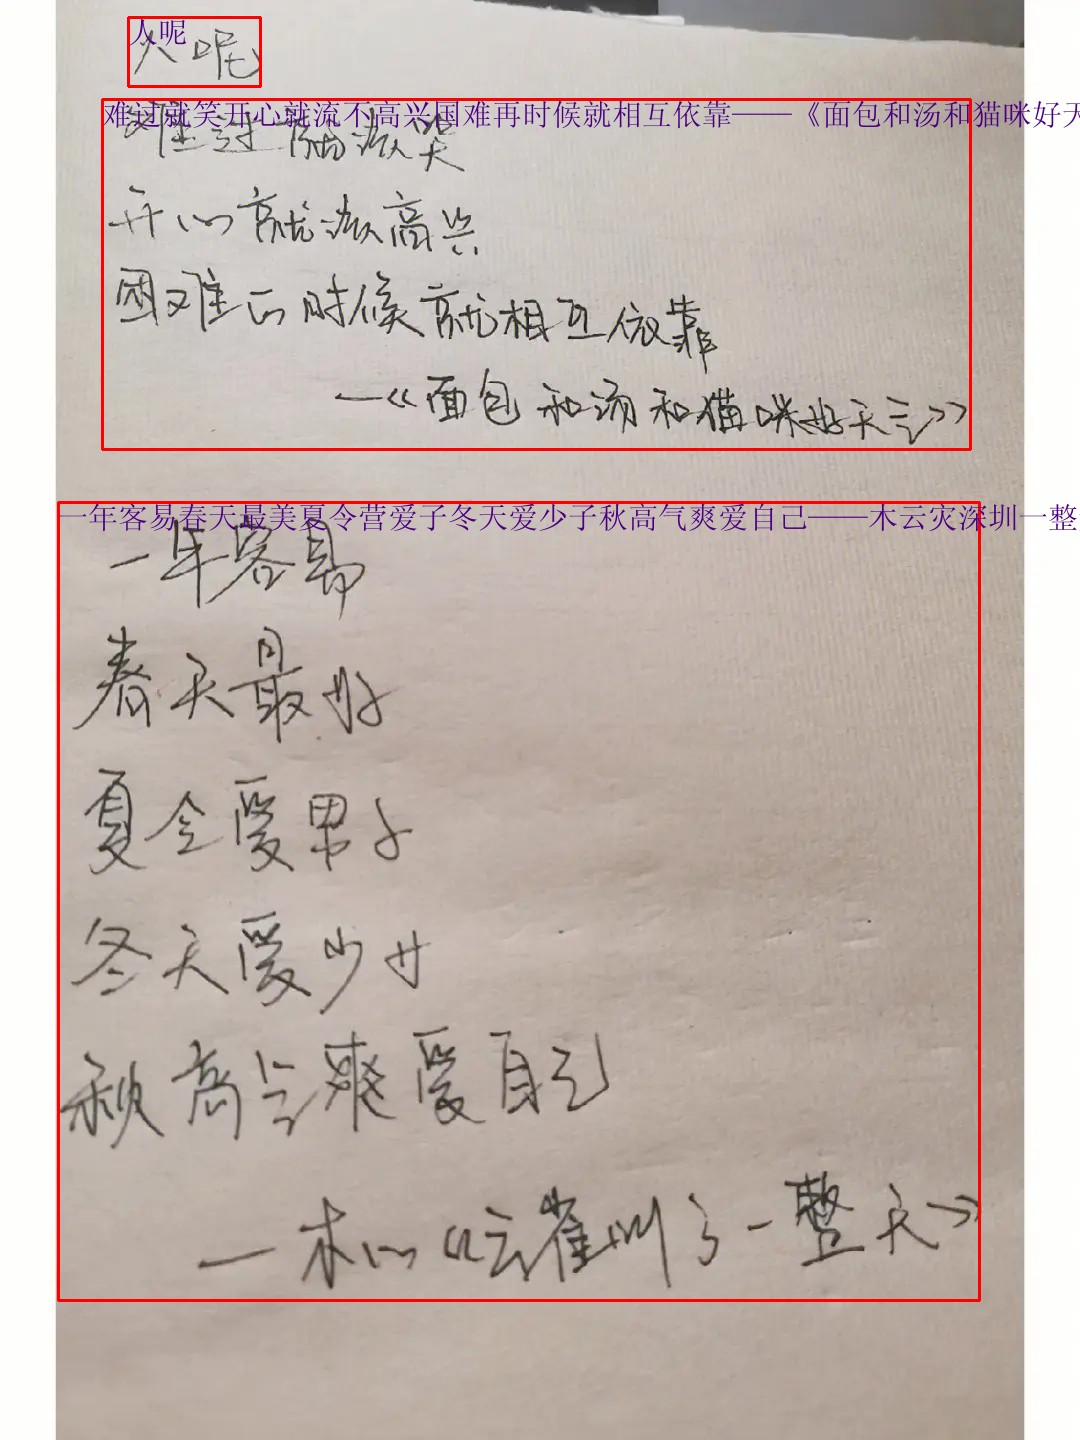 人呢
人呢
难过就笑开心就流不高兴国难再时候就相互依靠——《面包和汤和猫咪好天
难过就哭
开心就高兴
困难的时候就相互依靠
—《面包和汤和猫咪好天气》
一年客易春天最美夏令营爱子冬天爱少子秋高气爽爱自己——木云灾深圳一整
一年容易
春天最好
夏令爱男子
冬天爱少女
秋高气爽爱自己
—木心《云雀叫了一整天》